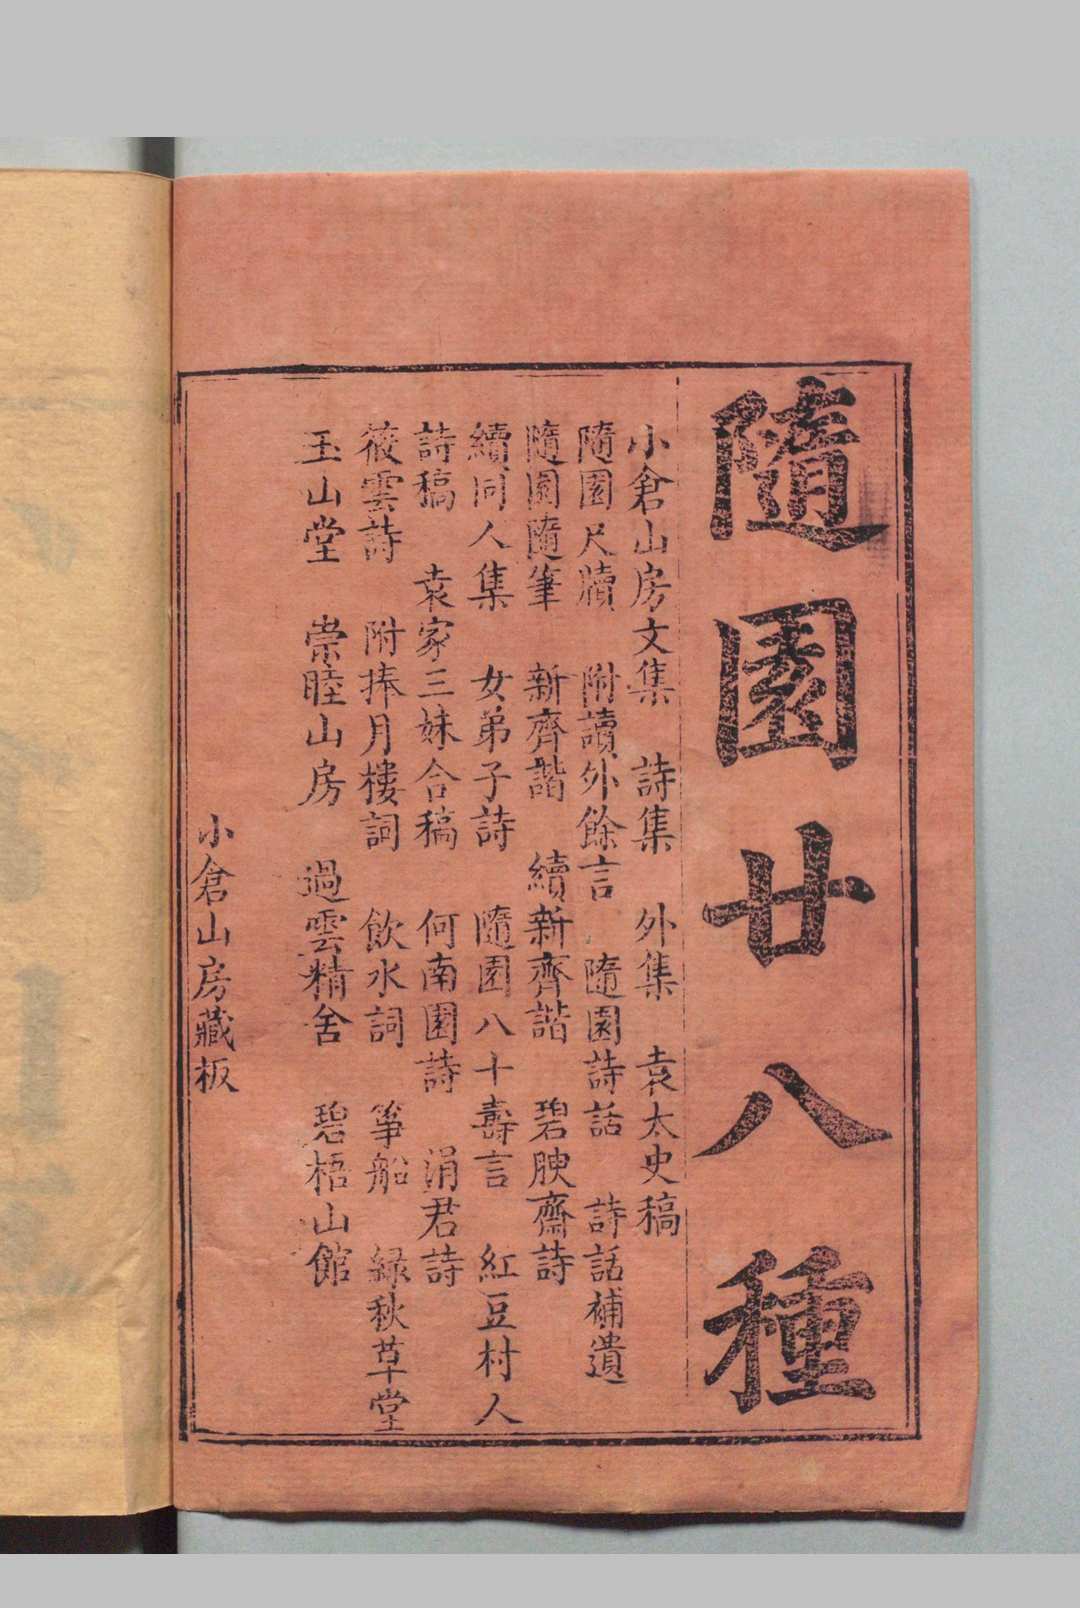 隨園廿八種
小倉山房文集　詩集　外集　袁太史稿
隨園尺牘　附讀外餘言　隨園詩話　詩話補遺
隨園隨筆　新齊諧　續新齊諧　碧腴齋詩
續同人集　女弟子詩　隨園八十壽言　紅豆村人
詩稿　袁家三妹合稿　何南園詩　涓君詩
筱雲詩　附捧月樓詞　飲水詞　箏船　綠秋草堂
玉山堂　崇睦山房　過雲精舍　碧梧山館
小倉山房藏板